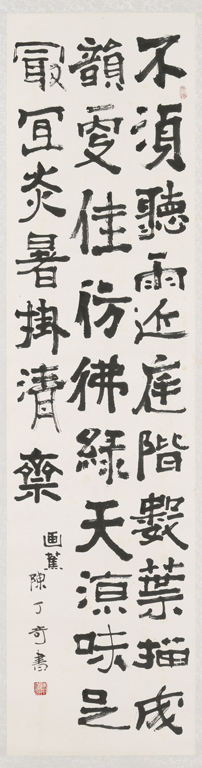 不須聽雨近庭階數葉描成
韻更佳彷彿綠天涼味足
冣冝炎暑掛清齋
画蕉
陳丁奇書